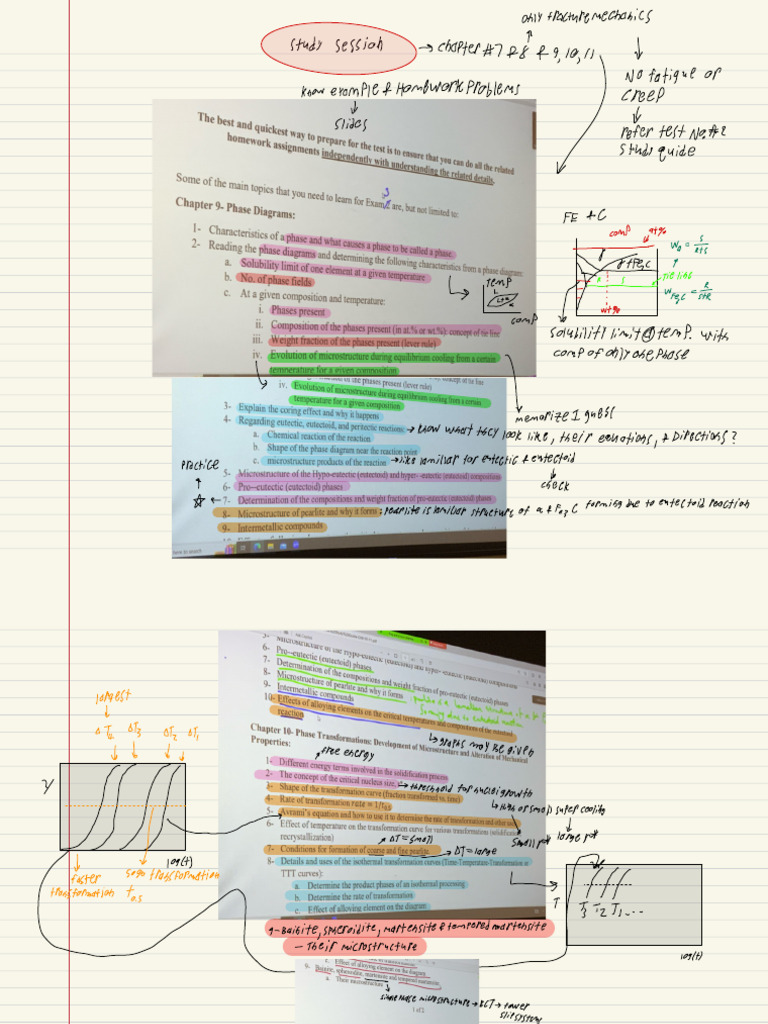 only fracture mechanics
study session → chapter #7 & 8 & 9, 10, 11
No fatigue or
creep
refer test No.#2
study guide
know example & Homework Problems
slides
The best and quickest way to prepare for the test is to ensure that you can do all the related
homework assignments independently with understanding the related details.
Some of the main topics that you need to learn for Exam 3 are, but not limited to:
Chapter 9- Phase Diagrams:
1- Characteristics of a phase and what causes a phase to be called a phase.
2- Reading the phase diagrams and determining the following characteristics from a phase diagram:
a. Solubility limit of one element at a given temperature
b. No. of phase fields
c. At a given composition and temperature:
i. Phases present
ii. Composition of the phases present (in at.% or wt.%): concept of tie line
iii. Weight fraction of the phases present (lever rule)
iv. Evolution of microstructure during equilibrium cooling from a certain
temperature for a given composition
temp
L
L+α
comp
FE + C
comp
at%
γ
γ+Fe3C
tie line
R S
wt%
Wα = S/R+S
WFe3C = R/S+R
solubility limit @ temp. with
comp of only one phase
of the phases present (lever rule)
concept of tie line
iv. Evolution of microstructure during equilibrium cooling from a certain
temperature for a given composition
3- Explain the coring effect and why it happens
4- Regarding eutectic, eutectoid, and peritectic reactions:
a. Chemical reaction of the reaction
b. Shape of the phase diagram near the reaction point
c. microstructure products of the reaction
5- Microstructure of the Hypo-eutectic (eutectoid) and hyper-eutectic (eutectoid) compositions
6- Pro-eutectic (eutectoid) phases
7- Determination of the compositions and weight fraction of pro-eutectic (eutectoid) phases
8- Microstructure of pearlite and why it forms
9- Intermetallic compounds
here to search
memorize I guess
→ know what they look like, their equations, & Directions?
→ like lamellar for eutectic & eutectoid
check
practice
; pearlite is lamellar structure of α & Fe3C forming due to eutectoid reaction
5- Microstructure of the Hypo-eutectic (eutectoid) and hyper-eutectic (eutectoid) compositions
6- Pro-eutectic (eutectoid) phases
7- Determination of the compositions and weight fraction of pro-eutectic (eutectoid) phases
8- Microstructure of pearlite and why it forms
9- Intermetallic compounds
10- Effects of alloying elements on the critical temperatures and compositions of the eutectoid
reaction
↳ graphs may be given
Chapter 10- Phase Transformations: Development of Microstructure and Alteration of Mechanical
Properties:
free energy
1- Different energy terms involved in the solidification process
2- The concept of the critical nucleus size,
→ threshold for nuclei growth
3- Shape of the transformation curve (fraction transformed vs. time)
4- Rate of transformation rate = 1/t0.5
5- Avrami's equation and how to use it to determine the rate of transformation and other
6- Effect of temperature on the transformation curve for various transformations (solidification,
recrystallization)
7- Conditions for formation of coarse and fine pearlite.
8- Details and uses of the isothermal transformation curves (Time-Temperature-Transformation or
TTT curves):
a. Determine the product phases of an isothermal processing
b. Determine the rate of transformation
c. Effect of alloying element on the diagram
ΔT = small
→ ΔT = large
small
large
super cooling
largest
ΔT3
ΔT2
ΔT1
y
log(t)
faster
transformation
50% transformation
t0.5
T
T3 T2 T1 ...
log(t)
9- Bainite, spheroidite, martensite & tempered martensite
- Their microstructure
c. Effect of alloying element on the diagram
9. Bainite, spheroidite, martensite and tempered martensite,
a. Their microstructure
single phase microstructure → BCT → fewer
slip system
1 of 2